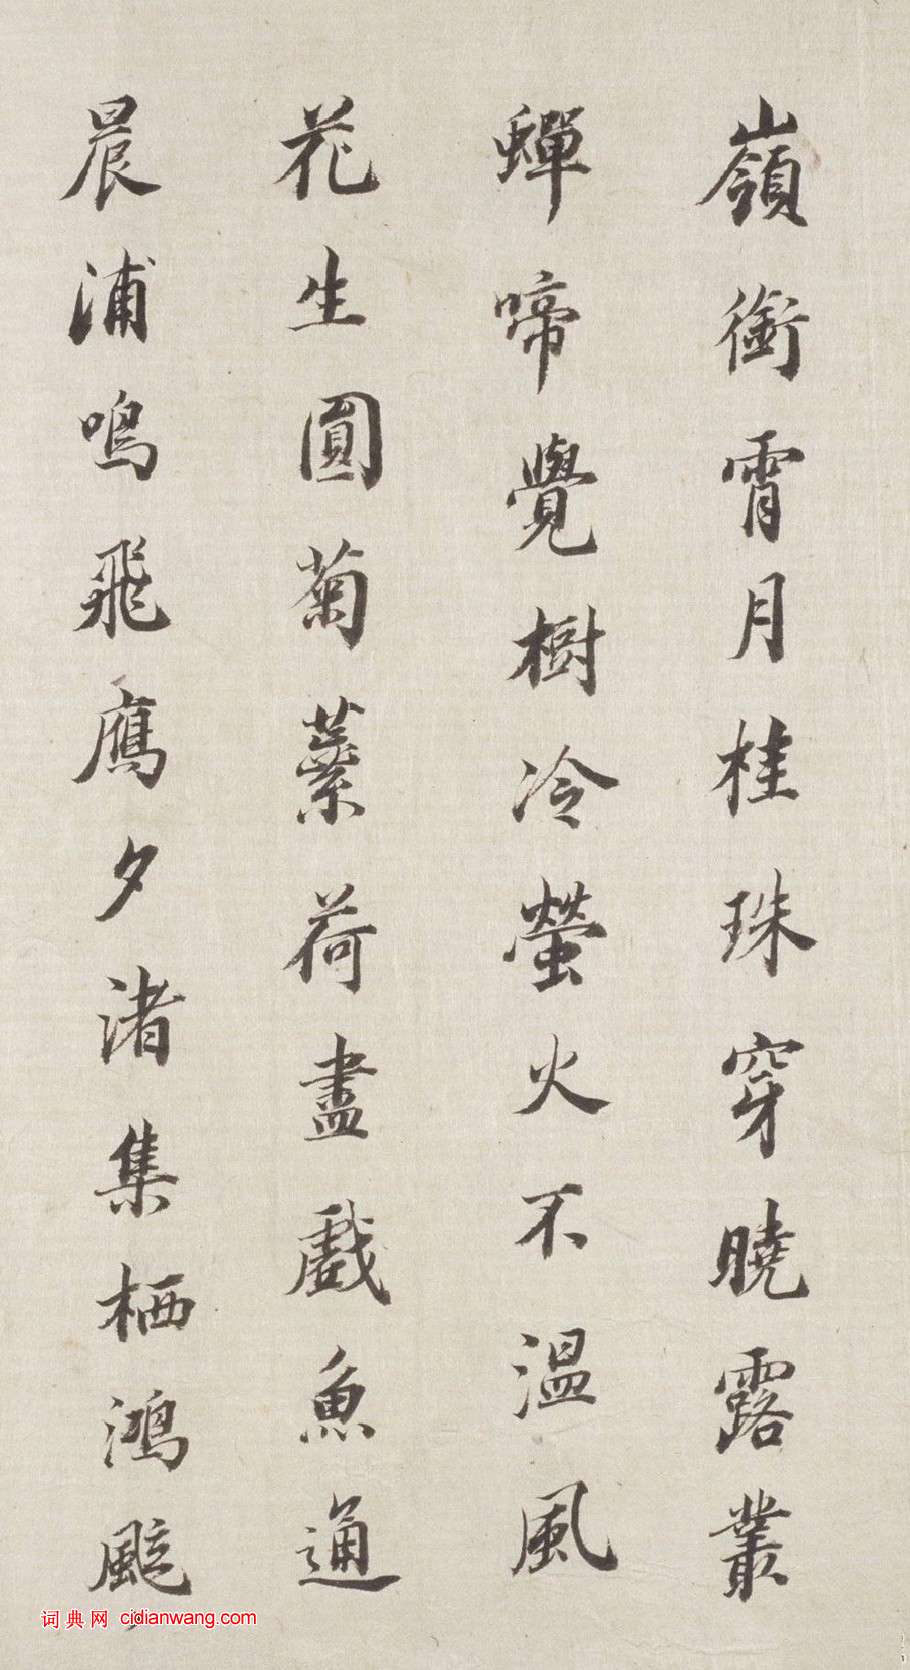 嶺銜霄月桂珠穿曉露叢
蟬啼覺樹冷螢火不溫風
花生圓菊蘂荷盡戲魚通
晨浦鳴飛鴈夕渚集栖鴻颭
词典网 cidianwang.com